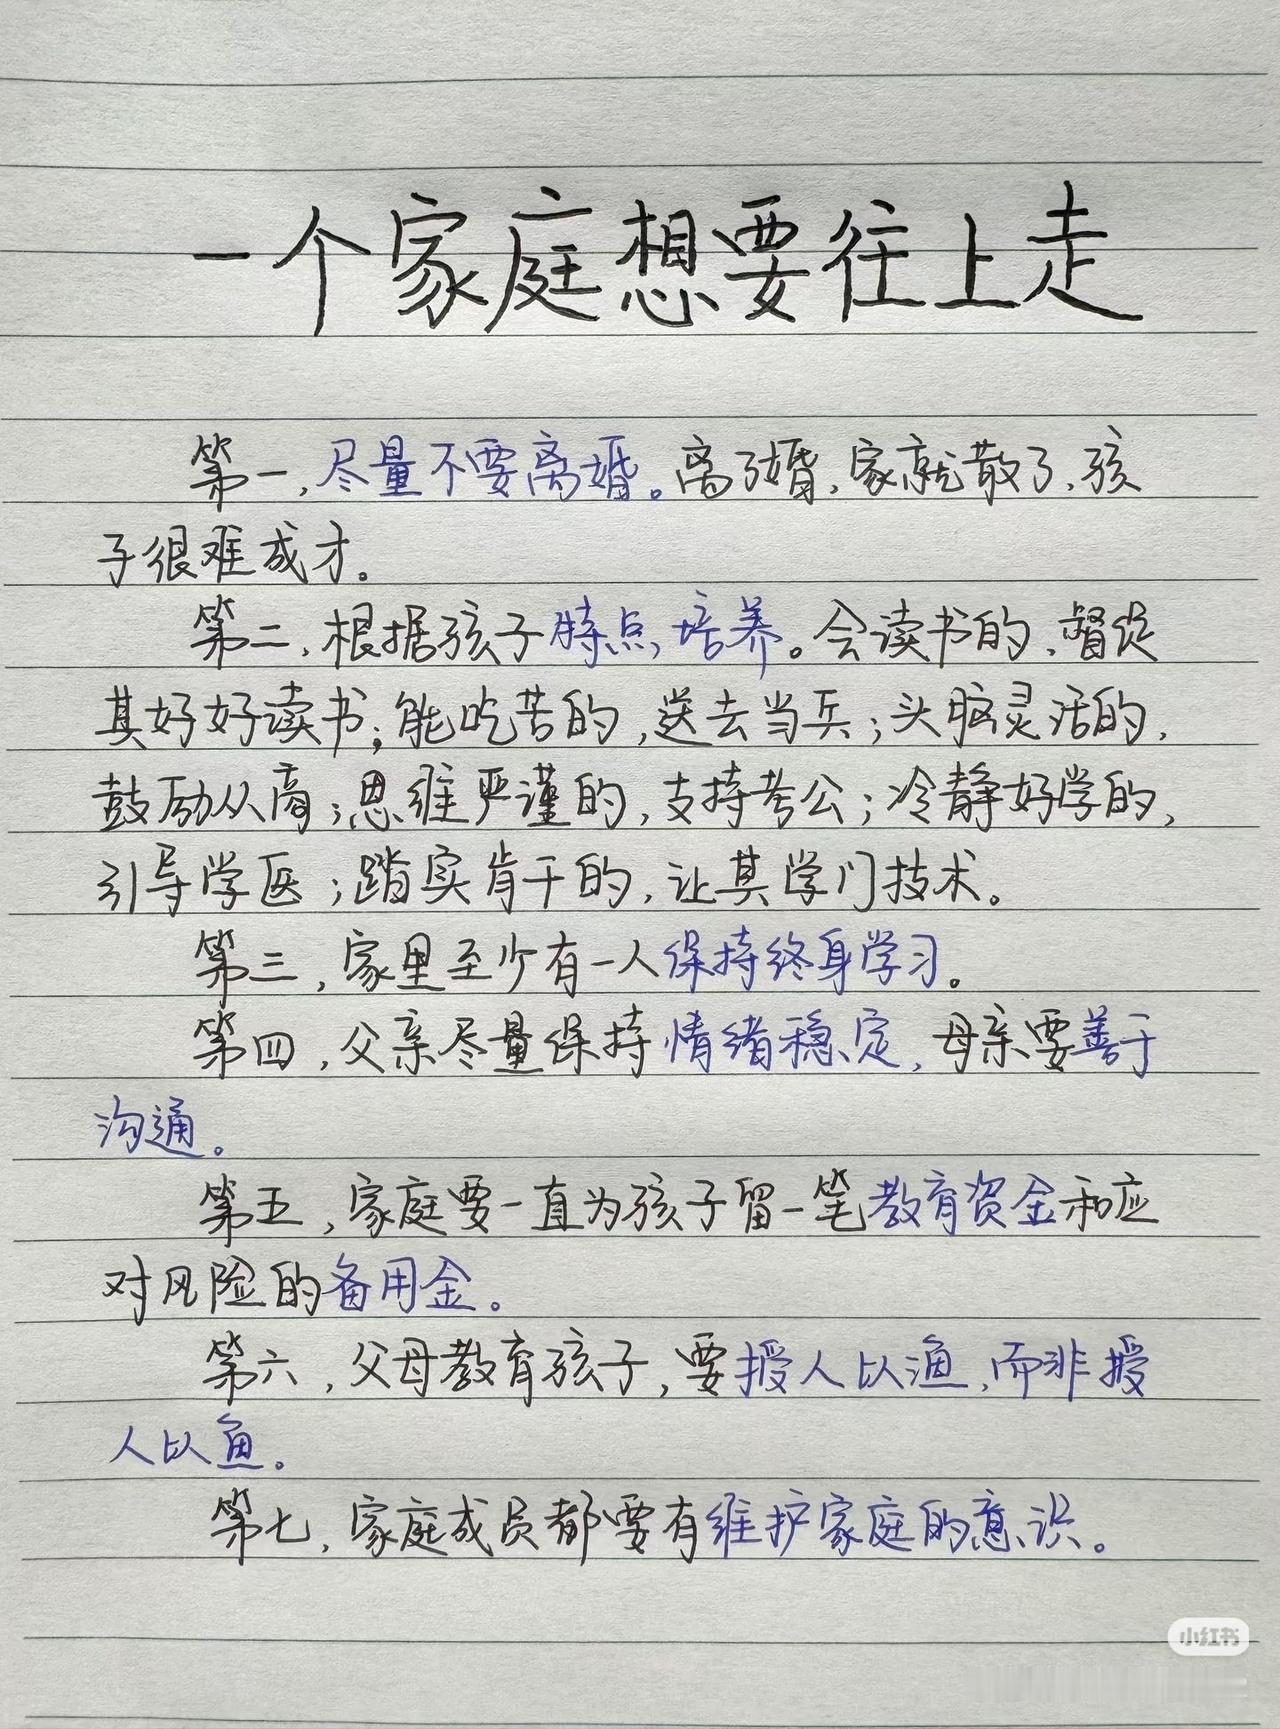 一个家庭想要往上走
第一,尽量不要离婚。离了婚,家就散了,孩
子很难成才。
第二,根据孩子特点培养。会读书的,督促
其好好读书;能吃苦的,送去当兵;头脑灵活的,
鼓励从商;思维严谨的,支持考公;冷静好学的,
引导学医;踏实肯干的,让其学门技术。
第三,家里至少有一人保持终身学习。
第四,父亲尽量保持情绪稳定,母亲要善于
沟通。
第五,家庭要一直为孩子留一笔教育资金和应
对风险的备用金。
第六,父母教育孩子,要授人以渔,而非授
人以鱼。
第七,家庭成员都要有维护家庭的意识。
小红书